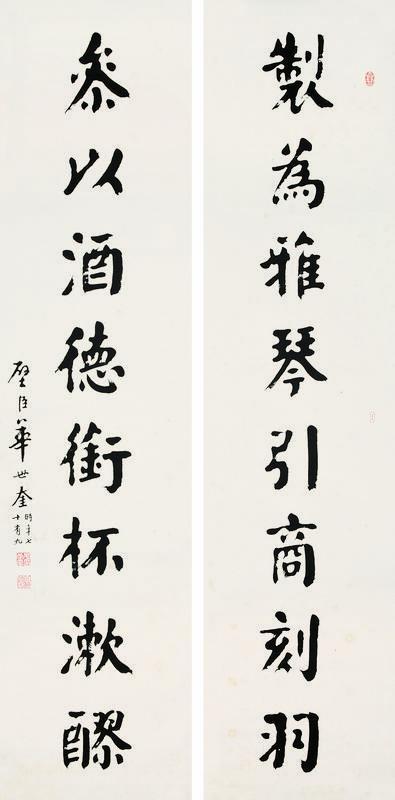 製為雅琴引商刻羽
參以酒德銜杯漱醪
璧臣華世奎
時年七
十有九